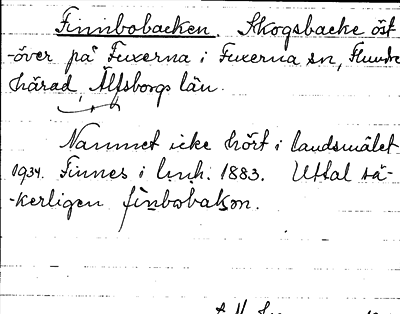 Finnbobacken. Skogsbacke öst-
-över på Fuxerna i Fuxerna sn, Flundre
härad, Älfsborgs län.
Namnet icke hört i landsmålet
1934. Finnes i l.n.h. 1883. Uttal sä-
-kerligen finbobakan.